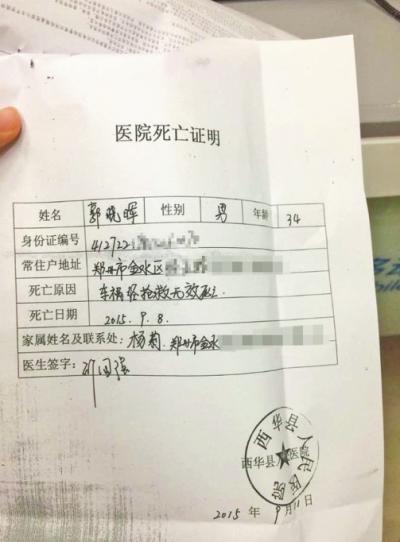 医院死亡证明
姓名 郭晓晖 性别 男 年龄 34
身份证编号 412722
常住户地址 郑州市金水区
死亡原因 车祸经抢救无效死亡.
死亡日期 2015. 9. 8.
家属姓名及联系处: 杨菊. 郑州市金水
医生签字:
西华县人民医院
西华县人民医院
2015 年 9 月 11 日